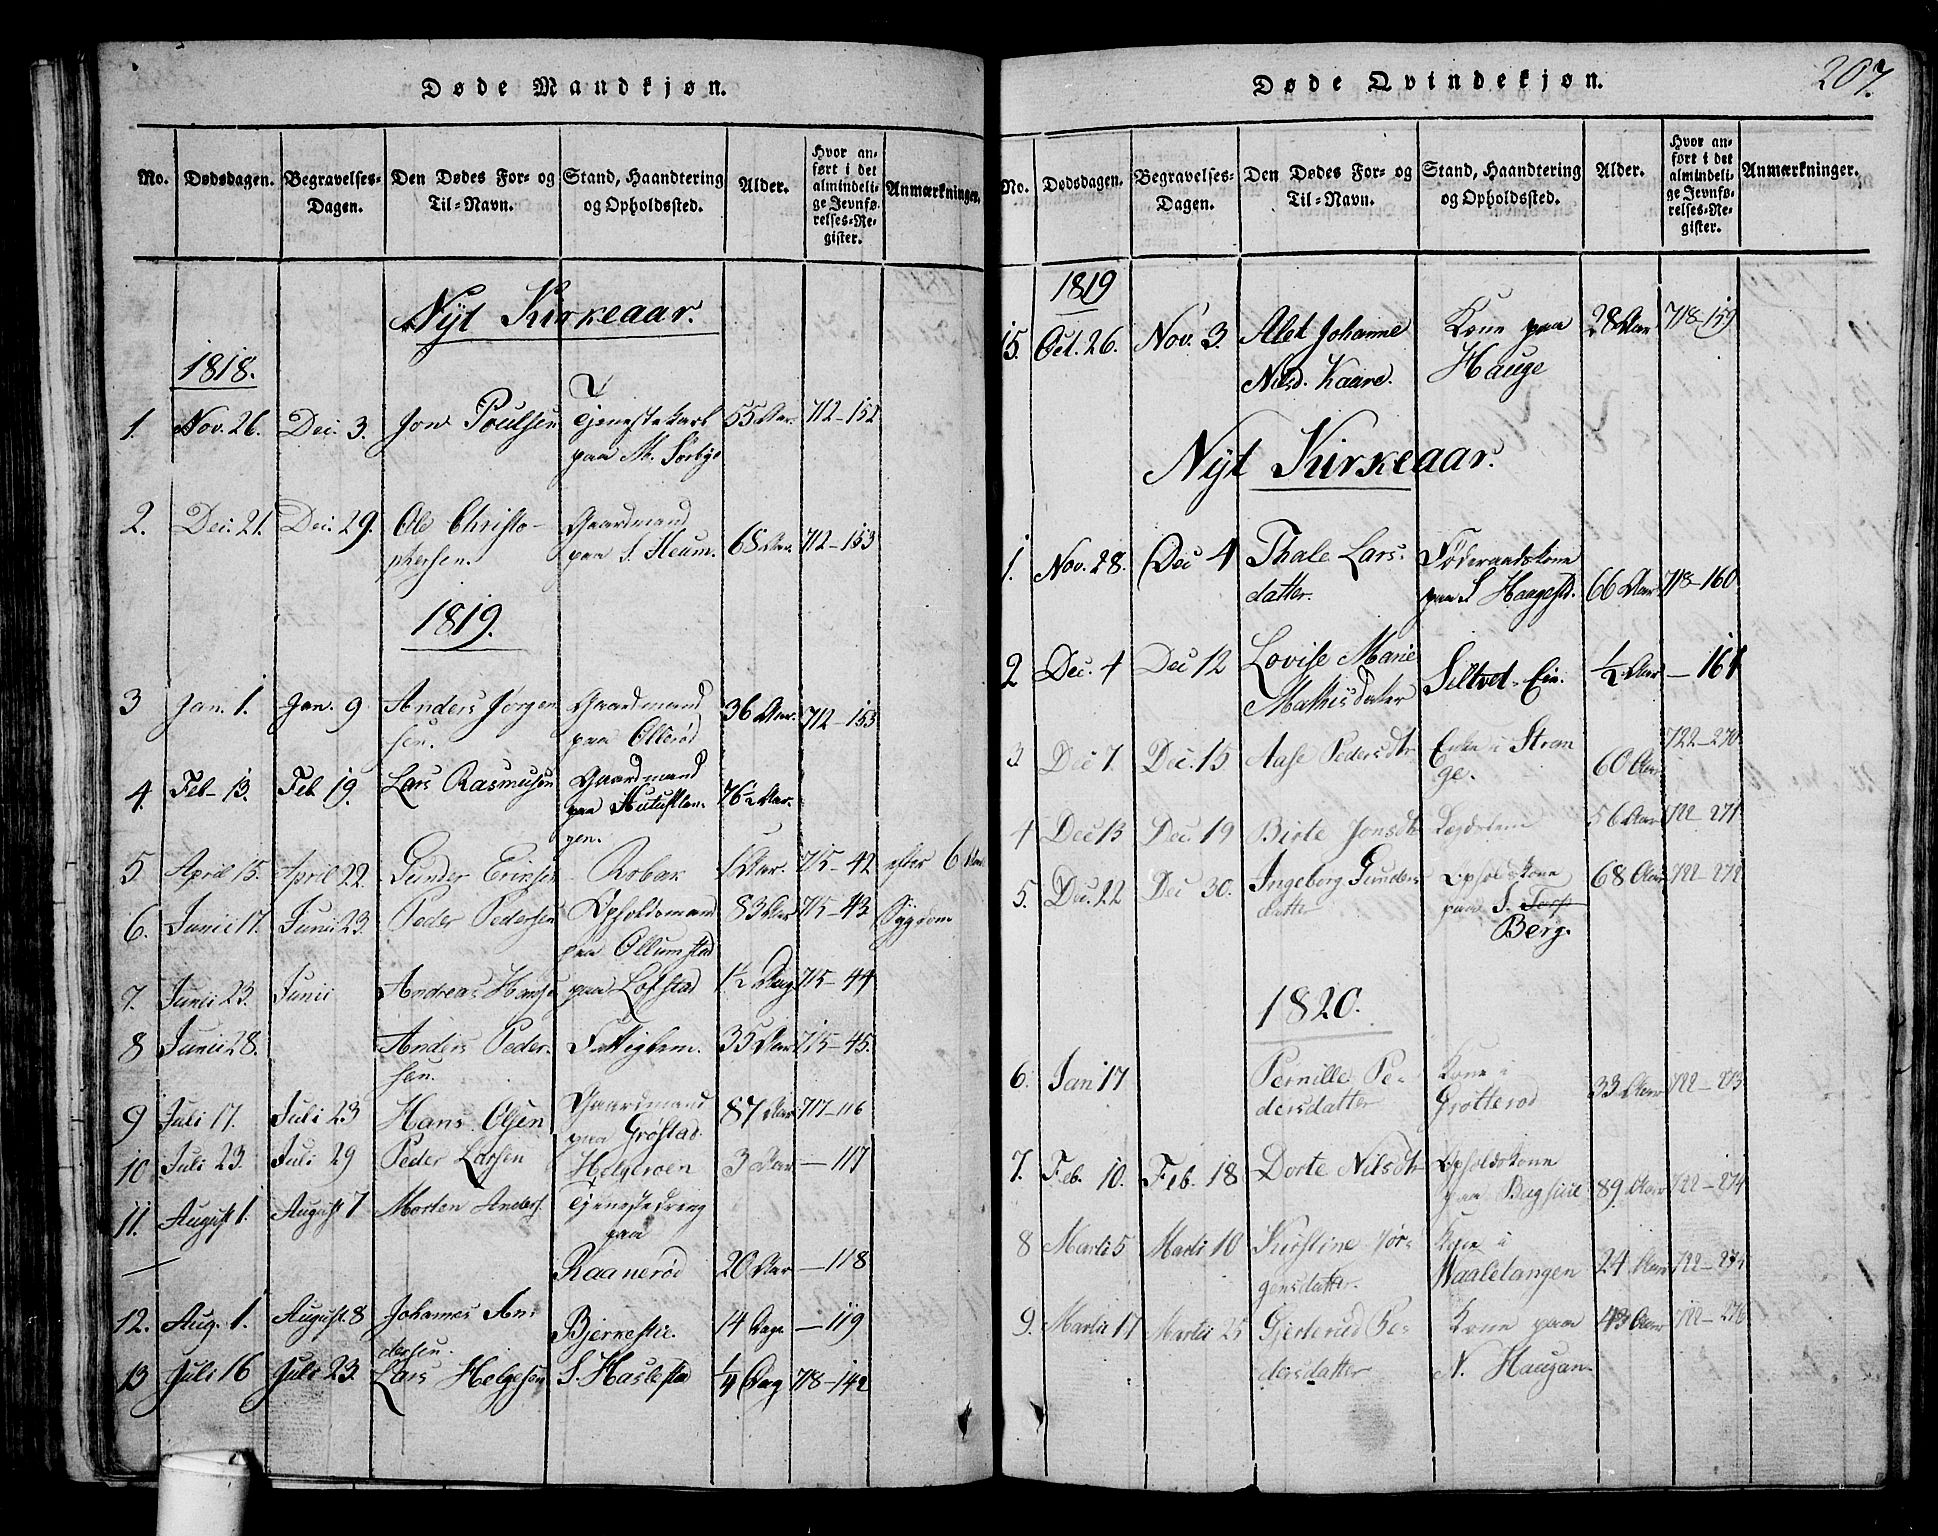 Døde Mandkjøn.
No. Dødsdagen. Begravelses-Dagen. Den Dødes For- og Til-Navn. Stand, Haandtering og Opholdssted. Alder. Hvor anført i det almindelige Jevnførelses-Register. Anmærkninger.
Nyt Kirkeaar.
1818.
1. Nov. 26. Dec. 3. Jon Poulsen Tjenestekarl 55 Aar. 712-152
paa M. Sørbye
2. Dec. 21. Dec. 29. Ole Christo- Gaardmand
phersen. paa S Heum. 68 Aar. 712-153
1819.
3 Jan. 1. Jan. 9 Anders Jørgen Gaardmand 36 Aar. 712-153
sen. paa Ollerød
4. Feb. 13. Feb 19. Lars Rasmusen Gaardmand 76½ Aar.
paa
gen.
5. April 15. April 22. Gunder Eriksen Robak 1 Aar. 715-42 efter 6
6. Junii 17. Junii 23. Peder Pedersen Opholdsmand 83 Aar 715-43 Sygdom
paa Ollumstad
7. Junii 23. Junii Andreas Hansen paa Lofstad 1½ Dag 715-44
8 Junii 28. Anders Peder- Fattiglem. 35 Aar 715-45.
sen.
9 Juli 17. Juli 23 Hans Olsen Gaardmand 87 Aar 717-116
paa Grøstad.
10 Juli 23. Juli 29 Peder Larsen Helgeroen 3 Aar -117
11. August 1. August 7 Morten Anders. Tjenestedreng
paa
Raanerød 20 Aar -118
12. Aug. 1. August. 8 Johannes An- Bjernestie. 14 Dage -119
dersen.
13 Juli 16 Juli 23. Lars Helgesen S. Haslestad ¼ Dag 718-142
Døde Qvindekjøn.
207.
No. Dødsdagen. Begravelses-Dagen. Den Dødes For- og Til-Navn. Stand, Haandtering og Opholdssted. Alder. Hvor anført i det almindelige Jevnførelses-Register. Anmærkninger.
1819
15. Oct. 26. Nov. 3. Alet Johanne Kone paa 28 Aar 718-159
Nilsd. Kaare. Hauge
Nyt Kirkeaar.
1. Nov. 28. Dec 4 Thale Lars- Føderaadskone
datter. paa S Haagest. 66 Aar 718-160.
2 Dec. 4 Dec 12 Lovise Marie Siltvet-Eie. ½ Aar -161
Mathisdatter
3 Dec 7. Dec. 15 Aase Pedersdtr Enke i Stran 60 Aar 722-270
ge.
4 Dec 13 Dec. 19 Birte Jonsdtr Lægdslem 56 Aar 722-271
5. Dec. 22 Dec 30. Ingeborg Gunders Opholdskone 68 Aar 722-272
datter paa S. Torp
Berg.
1820.
6. Jan 17 Pernille Pe- Kone i 33 Aar 722-273
dersdatter Grotterød
7. Feb. 10. Feb. 18 Dorte Nilsdtr Opholdskone
paa Bugserie 89 Aar 722-274
8 Marti 5 Marti 10 Kirstine Jør- Kone i 24 Aar 722-275
gensdatter. Maalelangen
9. Martii 17 Martii 25 Gjertrud Pe- Kone paa 43 Aar 722-276
dersdatter N. Haugan.